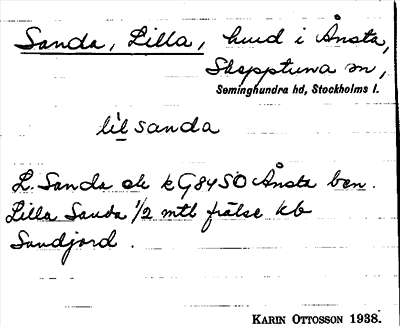 Sanda, Lilla, hmd i Ånsta,
Skepptuna sn,
Seminghundra hd, Stockholms l.
lilsanda
L. Sanda ek kG84SO Ånsta ben.
Lilla Sanda 1/2 mtl frälse kb
Sandjord.
KARIN OTTOSSON 1938.